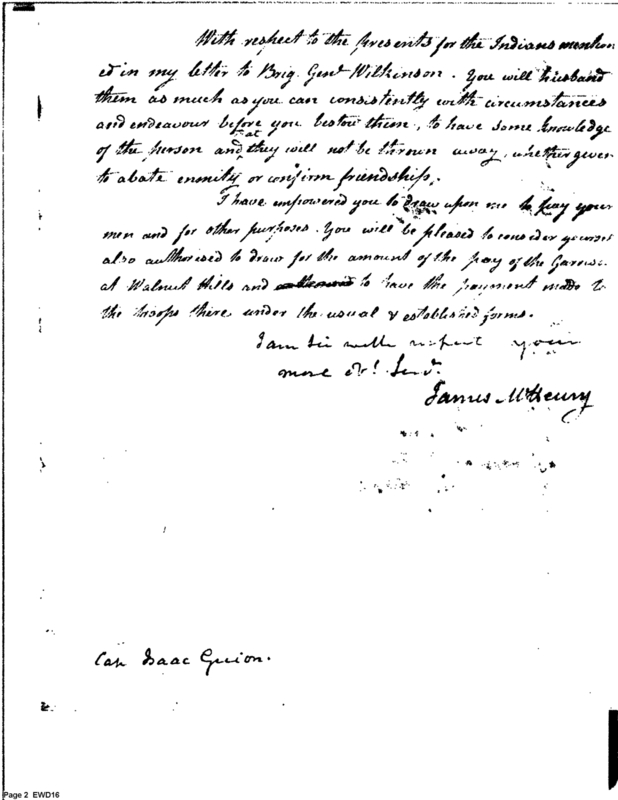 With respect to the presents for the Indians mention
ed in my letter to Brig. Genl Wilkinson. You will husband
them as much as you can consistently with circumstances
and endeavour before you bestow them, to have some knowledge
of the person and at they will not be thrown away, whether given
to abate enmity or confirm friendship.
I have empowered you to draw upon me to pay your
men and for other purposes. You will be pleased to consider yourself
also authorised to draw for the amount of the pay of the Garrison
at Walnut Hills and to have the payment made to
the troops there under the usual & established forms.
I am Sir with respect your
most obt. Servt.
James McHenry
Cap Isaac Guion.
Page 2 EWD16